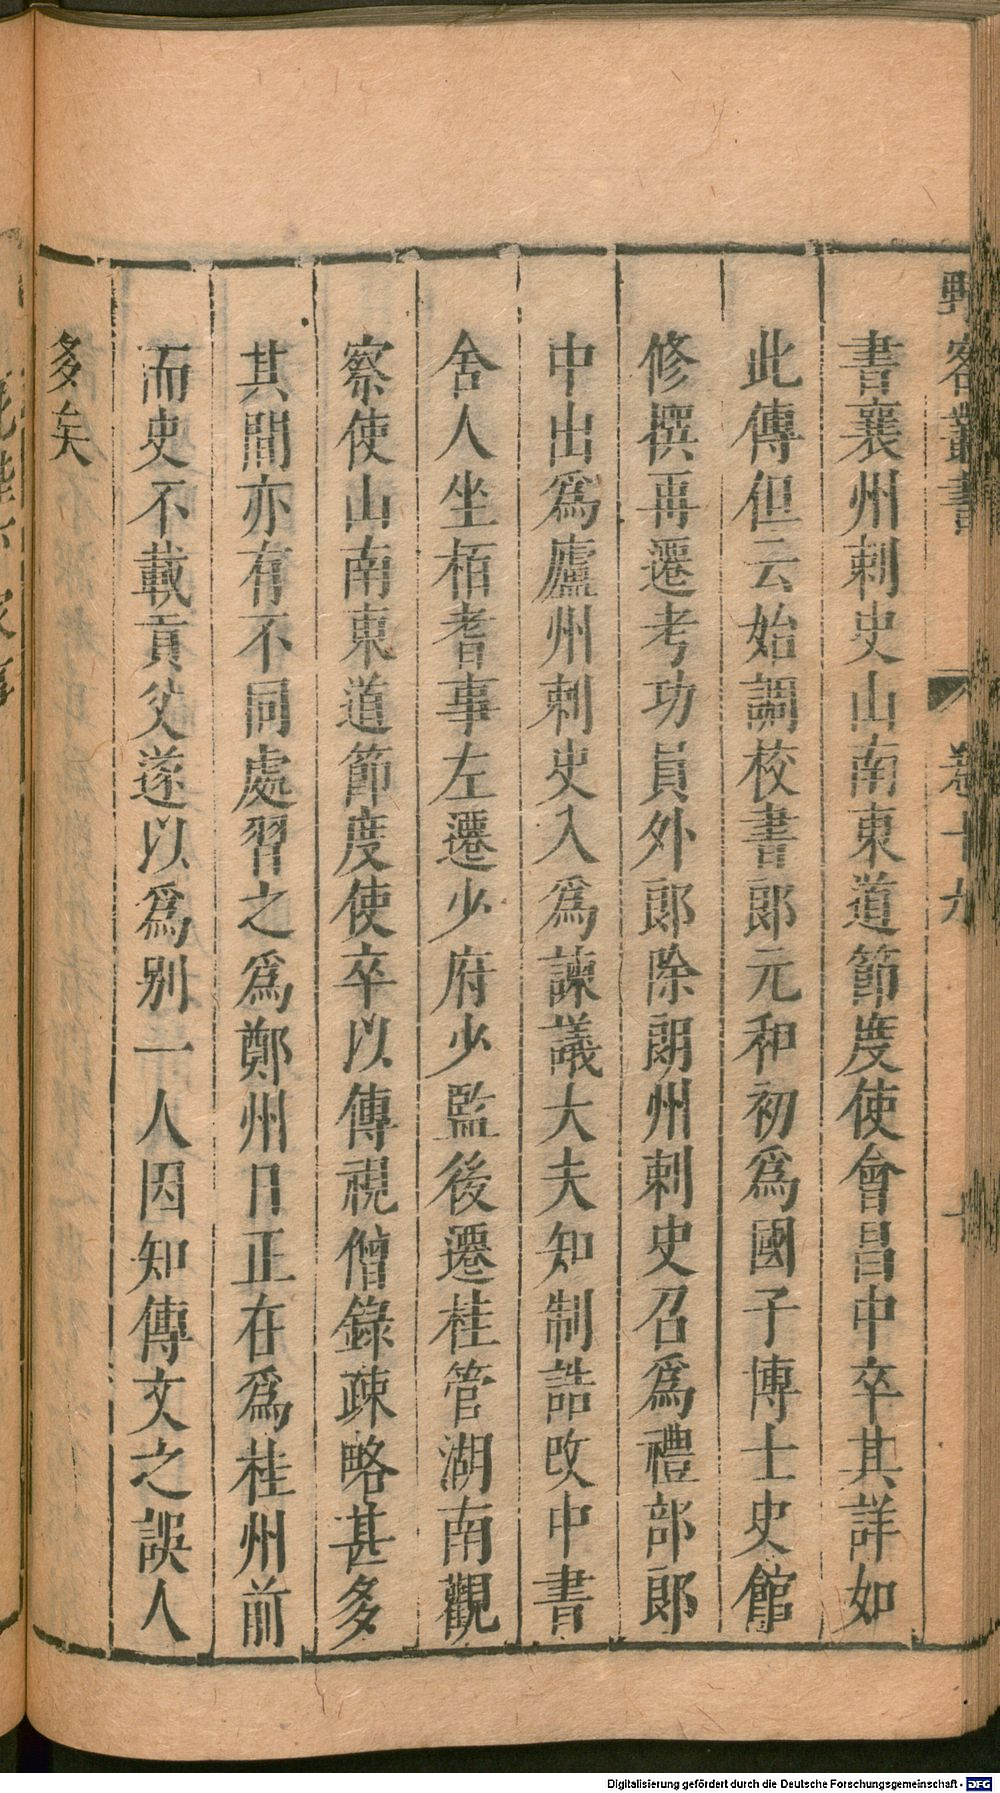 野客叢書 卷十九 十
書襄州刺史山南東道節度使會昌中卒其詳如
此傳但云始調校書郞元和初爲國子博士史館
修撰再遷考功員外郞除朗州刺史召爲禮部郞
中出爲廬州刺史入爲諫議大夫知制誥改中書
舍人坐栢耆事左遷少府少監後遷桂管湖南觀
察使山南東道節度使卒以傳視僧錄疎略甚多
其間亦有不同處習之爲鄭州日正在爲桂州前
而史不載貢父遂以爲别一人因知傳文之誤人
多矣
Digitalisierung gefördert durch die Deutsche Forschungsgemeinschaft - DFG